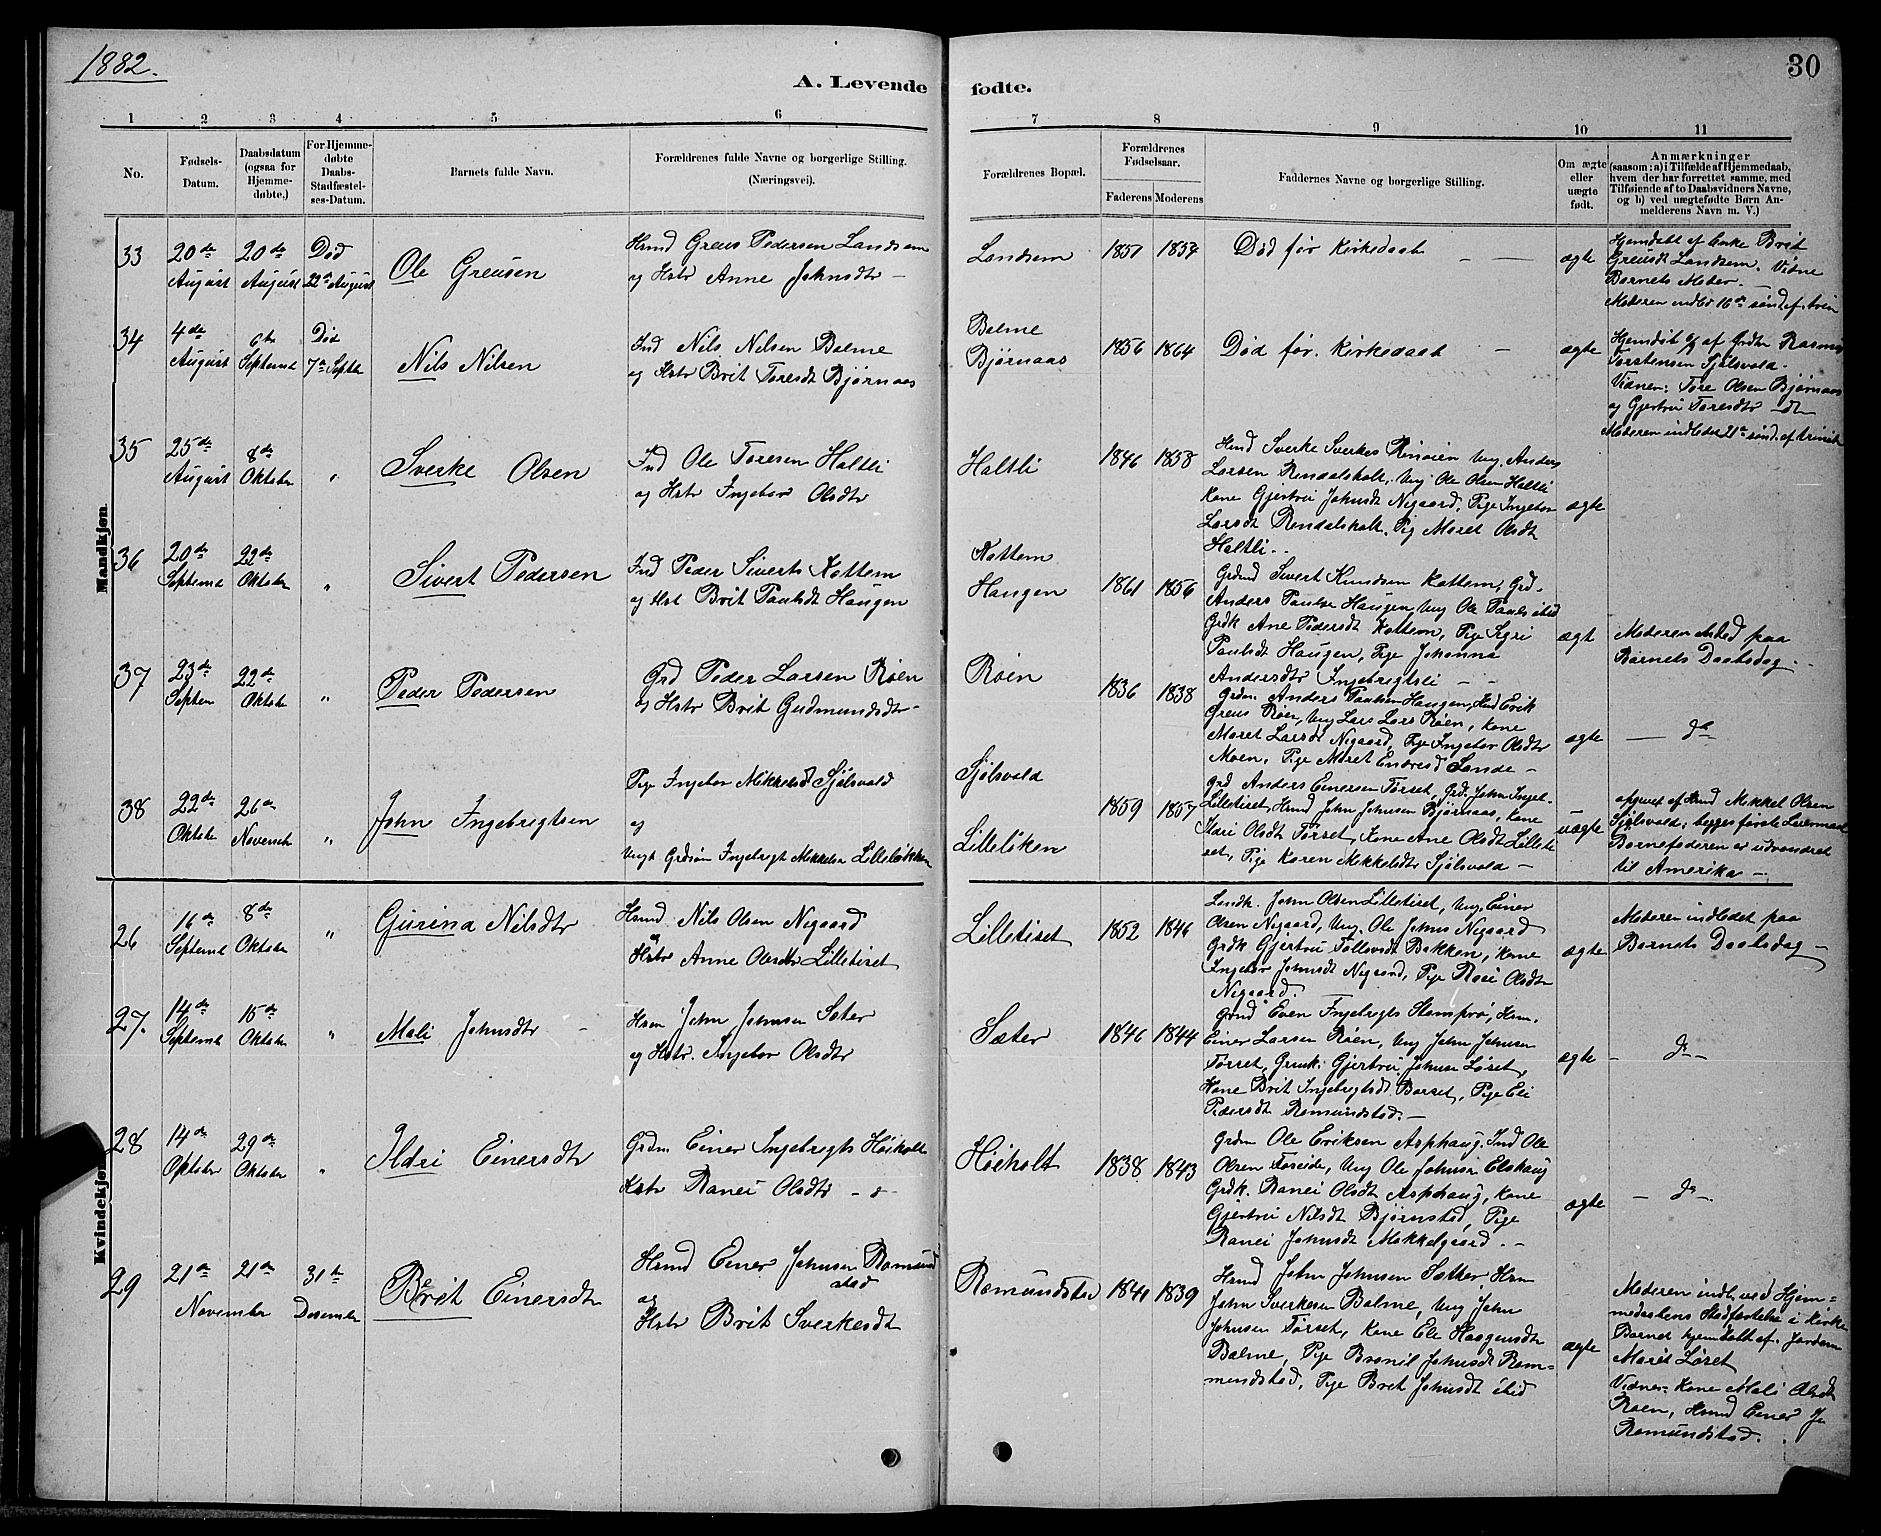 1882.
30
A. Levende fødte.
1 2 3 4 5 6 7 8 9 10 11
No.
Fødsels-Datum.
Daabsdatum (ogsaa for Hjemmedøbte.)
For Hjemmedøbte Daabs-Stadfæstelses-Datum.
Barnets fulde Navn.
Forældrenes fulde Navne og borgerlige Stilling. (Næringsvei).
Forældrenes Bopæl.
Forældrenes Fødselsaar.
Faderens Moderens
Faddernes Navne og borgerlige Stilling.
Om ægte eller uægte født.
Anmærkninger
(saasom: a) i Tilfælde af Hjemmedaab, hvem der har forrettet samme, med Tilføiende af to Daabsvidners Navne, og b) ved uægtefødte Børn Anmelderens Navn m. V.)
Mandkjøn.
33 20de August 20de August Død 22de August
Ole Greusen
Hmd Greus Pedersen Landsem
og Hstr Anne Johnsdtr
Landsem 1851 1854
Død før Kirkedaab
ægte
Hjemdøbt af Enke Brit
Greusdt Landsem. Vidne
Barnets Moder.
Moderen indled 16de sønd. ef. trin
34 4de August 6te Septembr Død 7de Septbr
Nils Nilsen
Ind Nils Nilsen Bolme
og Hstr Brit Toresdt Bjørnaas
Bolme
Bjørnaas
1856 1864
Død før Kirkedaab
ægte
Torstensen Sjølsvold
Vidner: Tore Olsen Bjørnaas
og Gjertru Toresdtr dt
Moderen indledet 21de sønd. ef. trinit
35 25de August 8de Oktober
Sverke Olsen
Ind Ole Toresen Holtli
og Hstr Ingebor Olsdtr
Holtli 1846 1858
Hmd Sverke Sverkes Rinøien Ung. Anders
Larsen Rendalsholt, Ung Ole Olsen Holtli
Kone Gjertru Johnsdt Nigaard, Pige Ingebor
Larsdt Rendelsholt, Pig Maret Olsdt
Holtli
ægte
36 20de Septembr 22de Oktober
Sivert Pedersen
Ind Peder Siverts Kattem
og Hst Brit Paulsdt Haugen
Kattem
Haugen
1861 1856
Grdmd Sivert Knudsen Kattem, Grd.
Anders Paulse Haugen, Ung Ole Pauls ibid
Grdk Ane Pedersdt Kattem, Pige Sigri
Paulsdt Haugen, Pige Johanna
Andersdtr Ingebrigtsli
ægt
Moderen indled paa
Barnets Daabsdag
37 23de Septem 22de Oktober
Peder Pedersen
Grd Peder Larsen Røen
og Hstr Brit Gudmundsdtr
Røen 1836 1838
Grdm. Anders Paulsen Haugen, Ind Erik
Greus Røen, Ung Lars Lars Røen, Kone
Maret Larsdt Nigaard, Pige Ingebor Olsdtr
Moen, Pige Maret Endresd Lande
ægte
do
38 22de Oktober 26de Novembr
John Ingebrigtsen
Pige Ingebor Mikkelsdt Sjølsvold
og
Ungk Grdsøn Ingebrigt Mikkelse Lilleløkken
Sjølsvold
Lilleløken
1859 1857
Grd Anders Einersen Tørset, Grd. John Ingebr
Lilletiset, Hmd John Johnsen Bjørnaas, Kone
Ildri Olsdt Tørset, Kone Ane Olsdt Lilleti
set, Pige Karen Mikkelsdtr Sjølsvold
uægte
opgivet af Hmd Mikkel Olsen
Sjølsvold; begges første Leiermaal
Barnefaderen er udvandret
til Amerika
Kvindekjøn.
26 16de Septembr 8de Oktober
Gurina Nilsdtr
Hmd Nils Olsen Nigaard
og
Hstr Anne Olsdtr Lilletiset
Lilletiset 1852 1846
Landh. John Olsen Lilletiset, Ung. Einer
Olsen Nigaard, Ung. Ole Johns Nigaard
Grdk Gjertru Tollevsdt Bakken, Kone
Ingebor Johnsdt Nigaard, Pige Roei Olsdtr
Nigaard.
ægte
Moderen indledet paa
Barnets Daabsdag
27. 14de Septembr 15de Oktober
Mali Johnsdtr
Hsm John Johnsen Sæter
og Hstr. Ingebor Olsdtr
Sæter 1846 1844
Grmd Even Ingebrigts Stomprø, Hsm.
Einer Larsen Røen, Ung John Johnsen
Tørset, Grmk. Gjertru Johnse Løset,
Kone Brit Ingebrigtsdt Barset, Pige Eli
Pedersdt Romundstad.
ægte
do
28 14de Oktober 29de Oktober
Ildri Einersdtr
Grdm Einer Ingebrigts Høiholt
Hstr Ranei Olsdtr
Høiholt 1838 1843
Grdm Ole Eriksen Asphaug, Ind Ole
Olsen Foseide, Ung Ole Johnsen Elshaug
Grdk. Ranei Olsdt Asphaug, Kone
Gjertru Nilsdt Bjørnstad, Pige
Ranei Johnsdt Mokkelgaard.
ægte
do
29 21de 21de November 31te Desember
Brit Einersdtr
Hmd Einer Johnsen Romund
stad
og
Hstr Brit Sverkesdt
Romundstad 1841 1839
Hmd John Johnsen Sætter, Hsm
John Sverkesen Bolme, Ung John
Johnsen Tørset, Kone Eli Haagensdtr
Bolme, Pige Brønil Johnsdt Rom-
mundstad, Pige Brit Johnsdt ibid
ægte
Moderen indl. ved Hjem-
medaabens Stadfæstelse i Kirke
Barnet hjemdøbt af Jordem
Marit Løset
Vidner: Kone Mali Olsdt
Røen, Hmd Einer Jo
Romundstad.